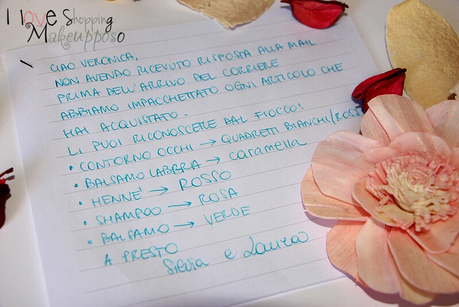 I love Shopping
Makeupposo
CIAO VERONICA,
NON AVENDO RICEVUTO RISPOSTA ALLA MAIL
PRIMA DELL'ARRIVO DEL CORRIERE
ABBIAMO IMPACCHETTATO OGNI ARTICOLO CHE
HAI ACQUISTATO.
LI PUOI RICONOSCERE DAL FIOCCO!
• CONTORNO OCCHI → QUADRETTI BIANCHI/ROSSI
• BALSAMO LABBRA → caramella
• HENNE' → ROSSO
• SHAMPOO → ROSA
• BALSAMO → VERDE
A PRESTO
Silvia e Laura